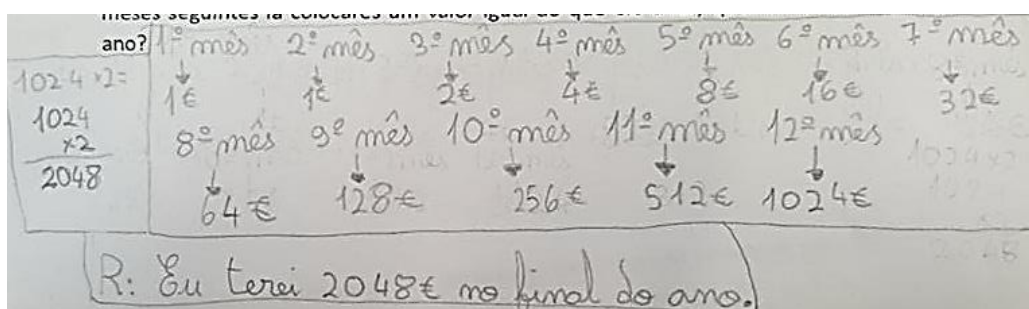 ano? 1º mês 2º mês 3º mês 4º mês 5º mês 6º mês 7º mês
1€ 1€ 2€ 4€ 8€ 16€ 32€
8º mês 9º mês 10º mês 11º mês 12º mês
64€ 128€ 256€ 512€ 1024€
1024 x2=
1024
x2
2048
R: Eu terei 2048€ no final do ano.